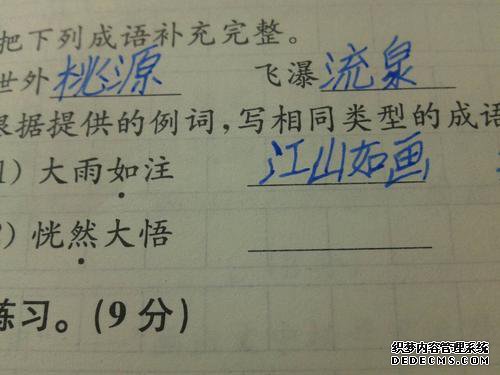 把下列成语补充完整。
世外桃源 飞瀑流泉
根据提供的例词,写相同类型的成语
1) 大雨如注 江山如画
) 恍然大悟
练习。(9分)
织梦内容管理系统
DEDECMS.COM